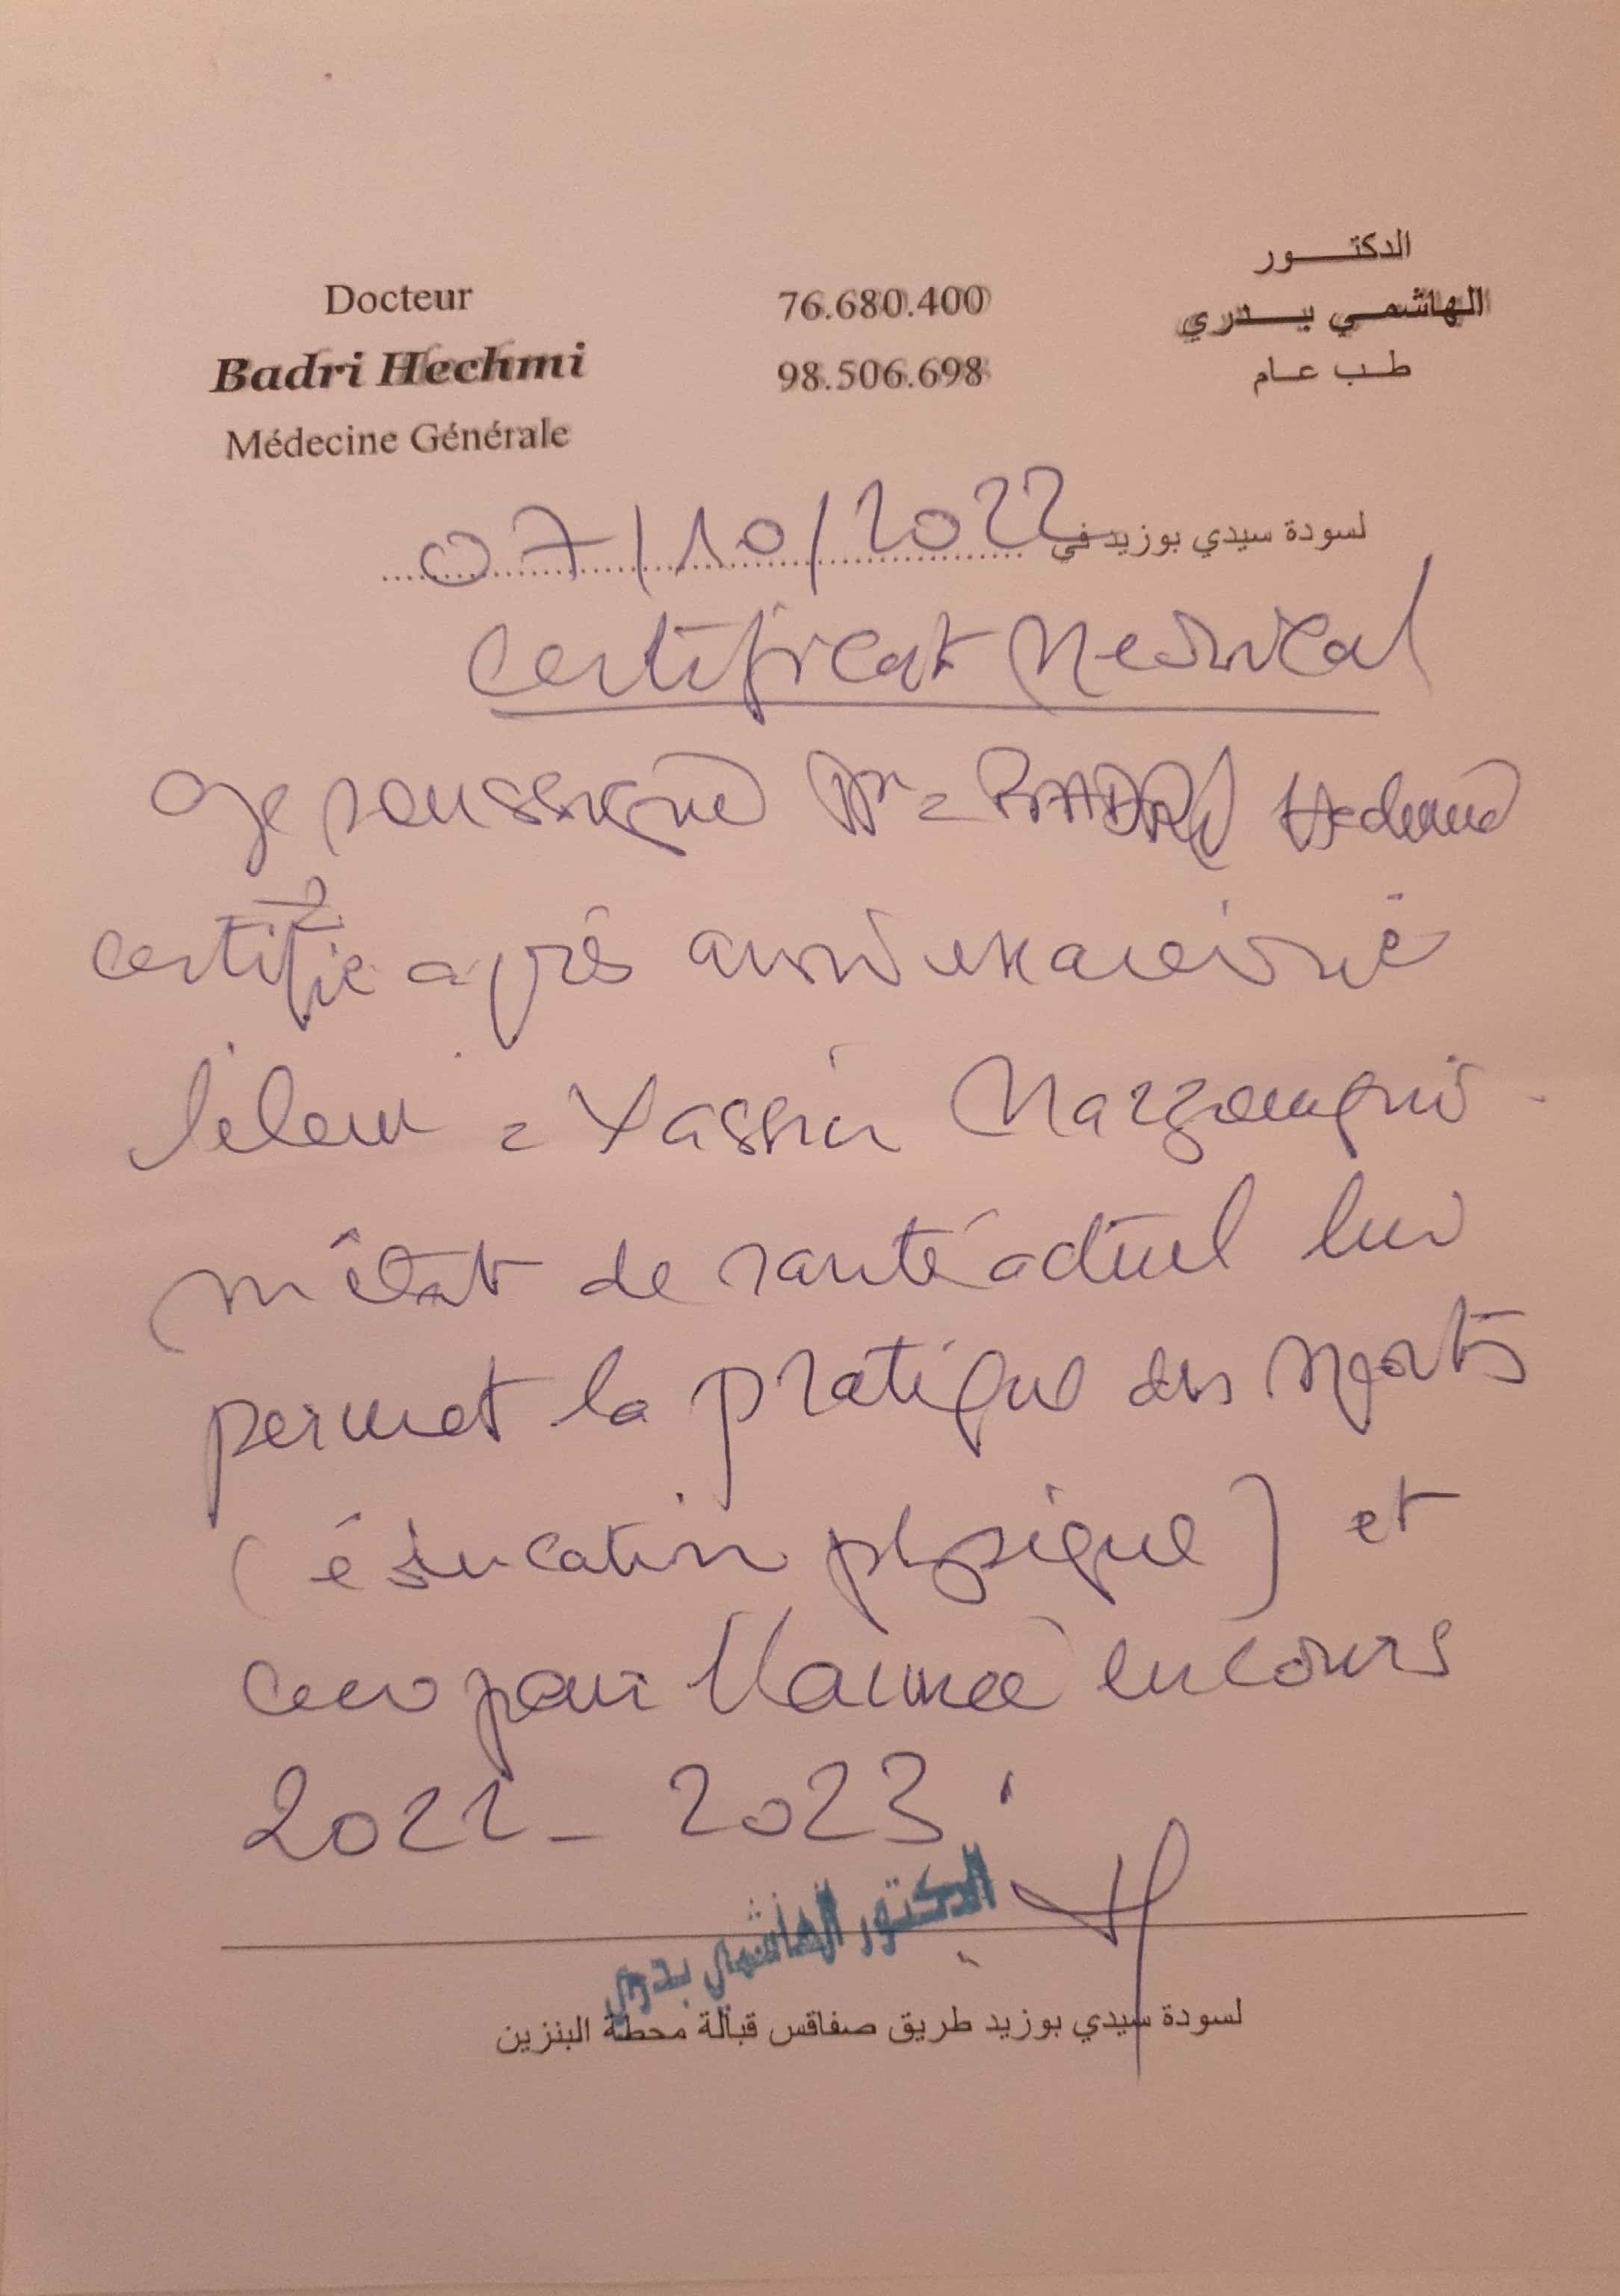 Docteur
Badri Hechmi
Médecine Générale
76.680.400
98.506.698
الدكتـــور
الهاشمي بـــدري
طب عام
لسودة سيدي بوزيد في 07/10/2022
Certificat Medical
Je soussigné Dr = BADRI Hechmi
certifie après avoir examiné
l'éleve = Yassin Marzougui
état de santé actuel lui
permet la pratique des sports
(éducation physique) et
ceci pour l'année en cours
2022 - 2023.
الدكتور الهاشمي بدري
لسودة سيدي بوزيد طريق صفاقس قبالة محطة البنزين